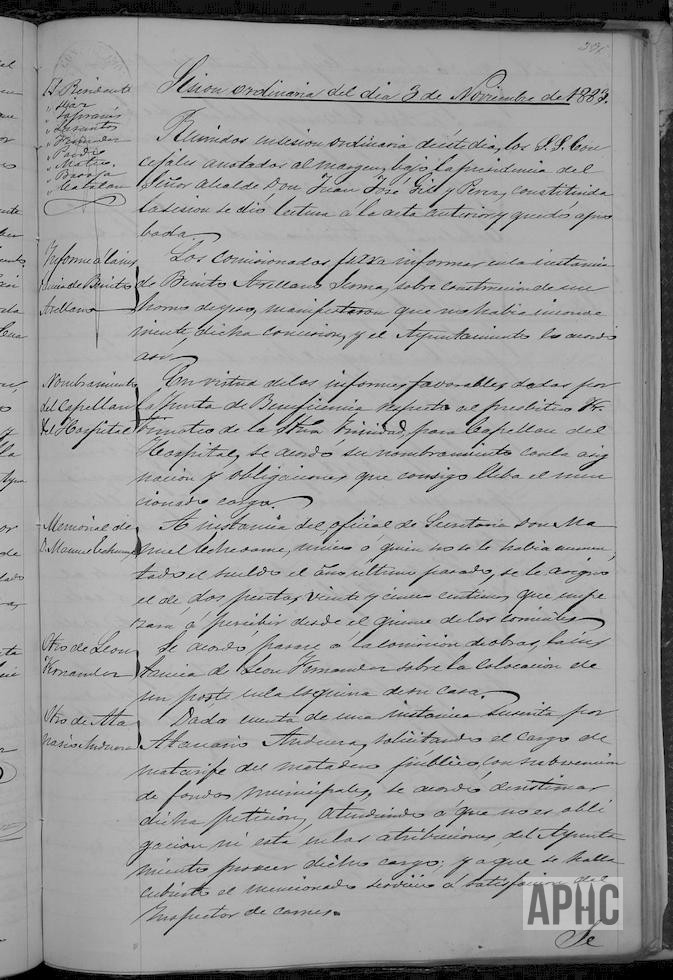 Sesion ordinaria del dia 3 de Noviembre de 1883.
Reunidos en sesion ordinaria de este dia, los S.S. Con
cejales anotados al margen, bajo la presidencia del
Señor Alcalde, Don Juan José Gil y Perez, constituida
la sesion se dió lectura á la acta anterior y quedó apro
bada.
Sr Presidente
Informe á la ins
tancia de Benito
Arellano
Los comisionados para informar en la instancia
de Benito Arellano, sobre construccion de un
horno de yeso, manifestaron que no habia inconve
niente, dicha concesion, y el Ayuntamiento lo acordó
asi.
Nombramiento
del Capellan
del Hospital
En virtud de los informes favorables dados por
la Junta de Beneficencia respecto al presbitero Fr.
de la Stma Trinidad, para Capellan del
Hospital, se acordó su nombramiento con la asig
nacion y obligaciones que consigo lleba el men
cionado cargo.
Memorial de
D. Manuel
A instancia del oficial de Secretaria Don Ma
nuel único á quien no se le habia aumen
tado el sueldo el año último pasado, se le asignó
el de dos pesetas veinte y cinco centimos que empe
zará á percibir desde el quince de los corrientes.
Otro de Leon
Fernandez
Se acordó pasase á la comision de obras, la ins
tancia de Leon Fernandez sobre la colocacion de
un poste en la esquina de su casa.
Otro de Ata
nasio Andueza
Dada cuenta de una instancia suscrita por
Atanasio Andueza, solicitando el cargo de
matarife del matadero público, con subvencion
de fondos municipales, se acordó desestimar
dicha peticion, atendiendo á que no es obli
gacion, ni está en las atribuciones del Ayunta
miento proveer dicho cargo; y á que se halla
cubierto el mencionado servicio á satisfacion del
Inspector de carnes.
Se
APHC